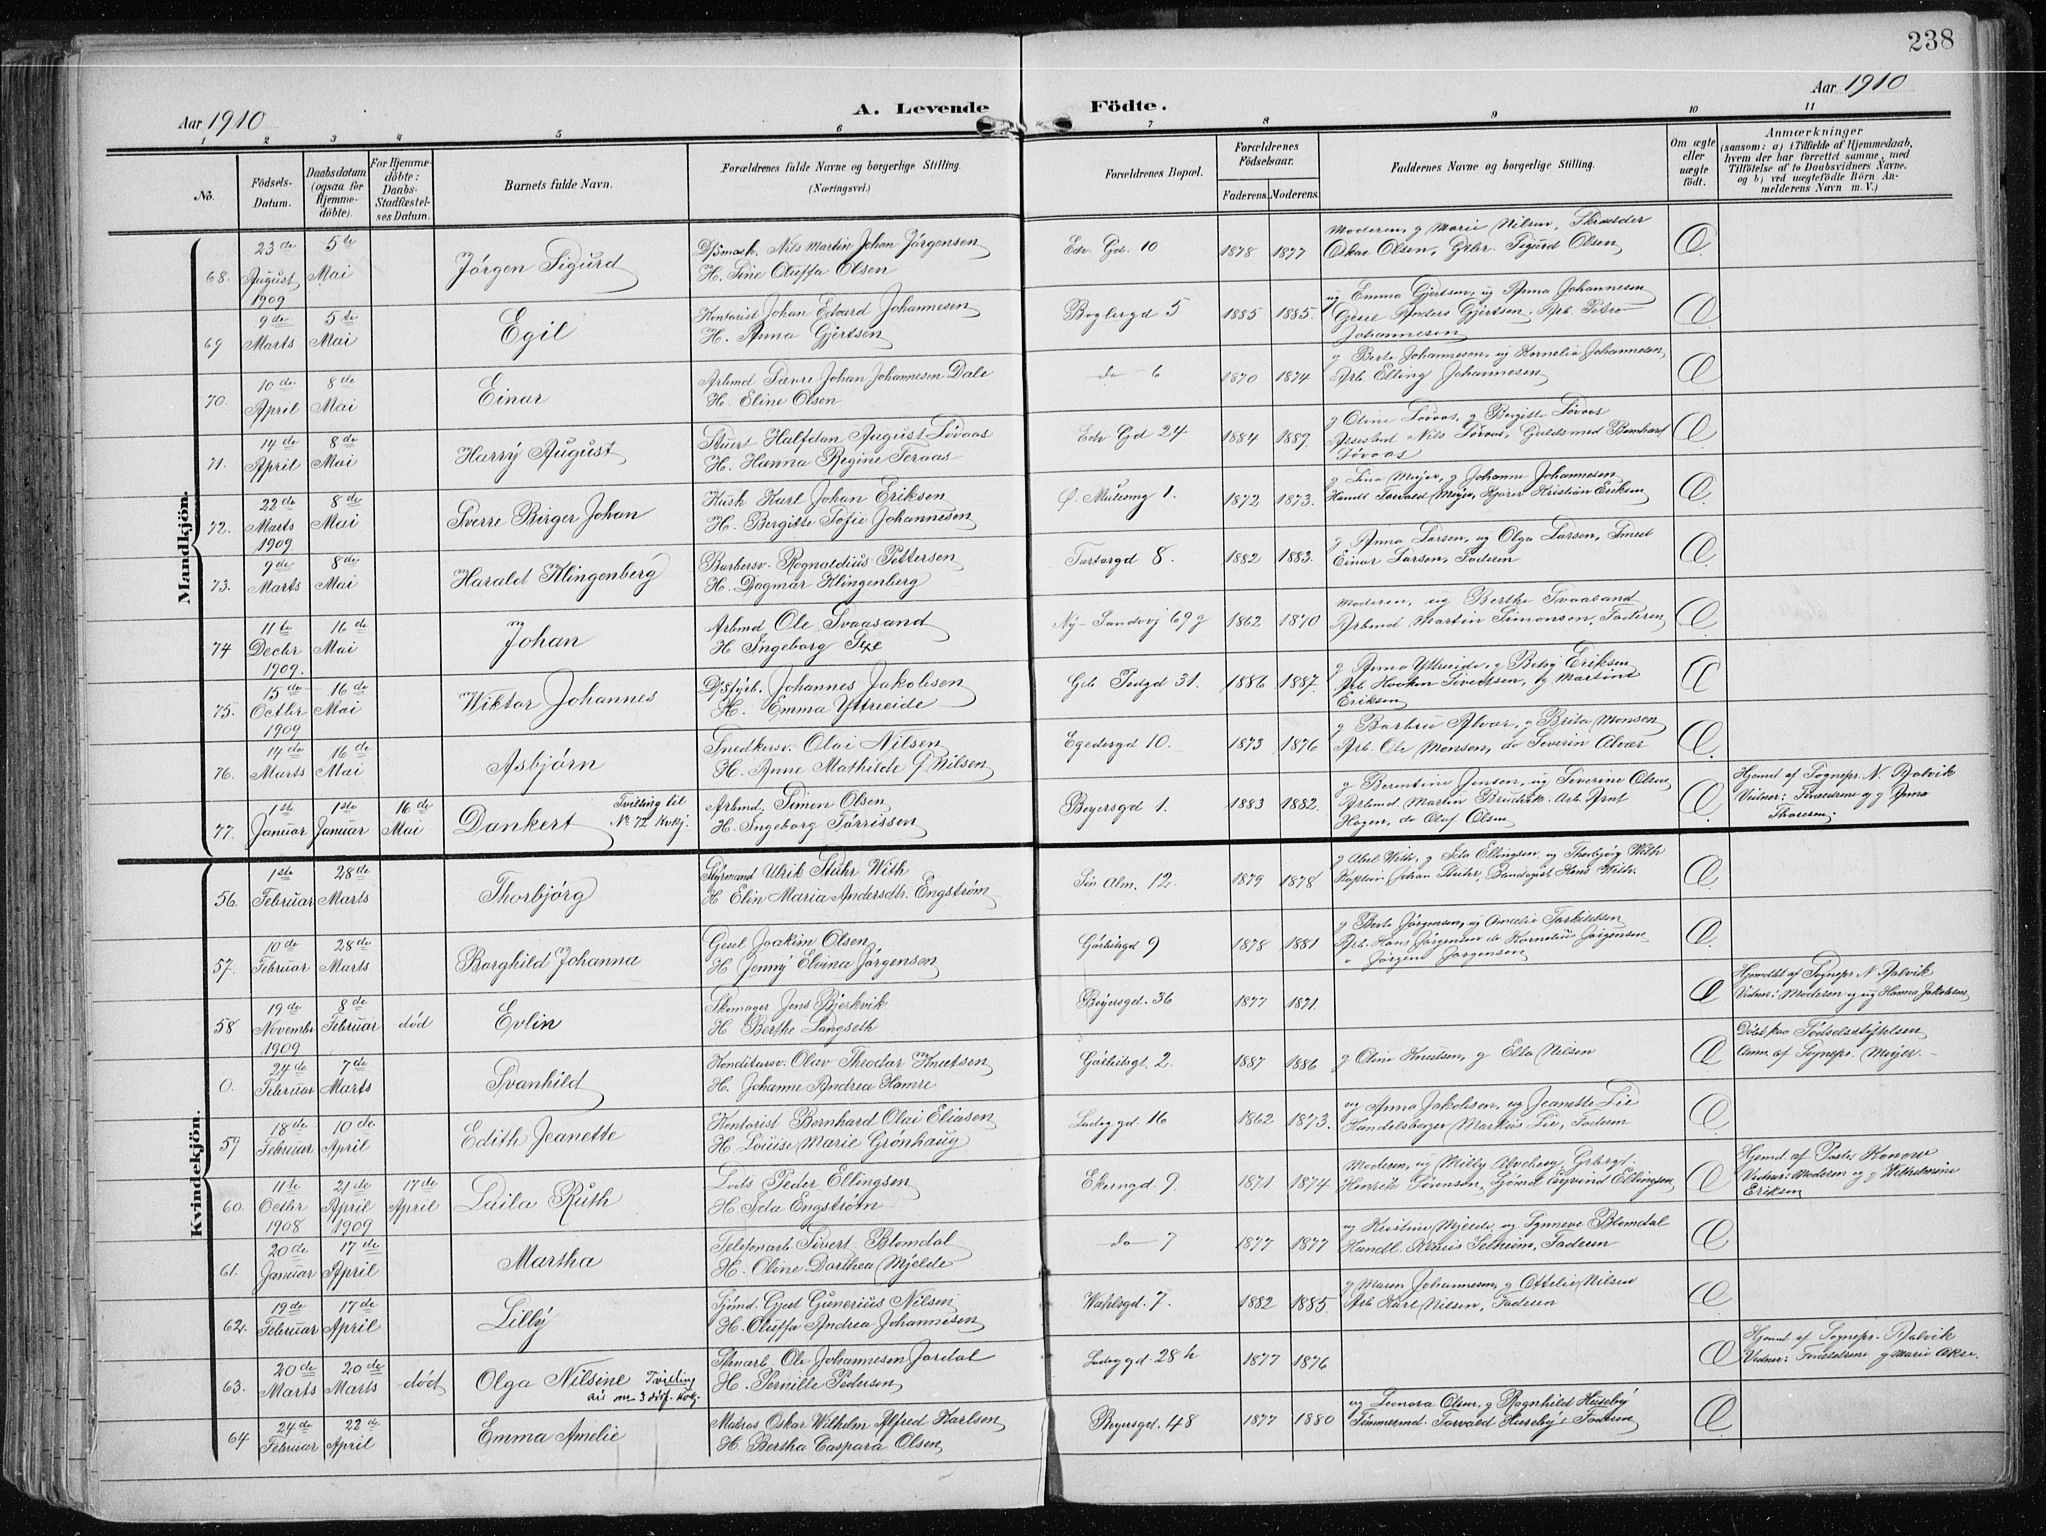 238
Aar 1910
A. Levende Födte.
Aar 1910
1 2 3 4 5 6 7 8 9 10 11
No.
Födsels-Datum.
Daabsdatum (ogsaa for Hjemmedöbte).
For Hjemmedöbte: Daabs-Stadfæstelses Datum.
Barnets fulde Navn.
Forældrenes fulde Navne og borgerlige Stilling. (Næringsvei.)
Forældrenes Bopæl.
Forældrenes Födselsaar.
Faderens. Moderens.
Faddernes Navne og borgerlige Stilling.
Om ægte eller uægte födt.
Anmærkninger (saasom: a) i Tilfælde af Hjemmedaab, hvem der har forrettet samme, med Tilföielse af to Daabsvidners Navne, og b) ved uægtefödte Börn Anmelderens Navn m. V.)
Mandkjön.
68. 23de August 1909 5te Mai Jørgen Sigurd
Nils Martin Johan Jørgensen
H. Sine Oluffa Olsen
10 1878 1877
Moderen, g Marie Nilsen, Skrædder
Oskar Olsen, Sigurd Olsen
69 9de Marts 5te Mai Egil
Kontorist Johan Edvard Johannesen
H. Anna Gjertsen
Boglergd 5 1885 1885.
ug Emma Gjertsen, ug Anna Johannesen
Gesel Anders Gjertsen. Arb. Petro
Johannesen
70. 10de April 8de Mai Einar
Arbmd Sævre Johan Johannesen Dale
H. Eline Olsen
do 6 1870 1874
g Berte Johannesen, ug Kornelia Johannesen,
Arb Elling Johannesen
71. 14de April 8de Mai Harry August
Stuert Halfdan August Søvaas
H. Hanna Regine Teraas
Edv Gd 24 1884 1889.
g Oline Søvaas, g Bergitte Søvaas
Assistent Nils Søvaas, Guldsmed Bernhard
Søvaas
72. 22de Marts 1909 8de Mai Sverre Birger Johan
Kusk Karl Johan Eriksen
H. Bergitte Sofie Johannesen
1. 1872 1873.
g Lina Meyer, g Johanne Johannesen
Handl Torvald Meyer, Kjører Kristian Eriksen
73. 9de Marts 8de Mai Harald Klingenberg
Barbersv. Rognaldius Pettersen
H. Dagmar Klingenberg
Tartargd 8. 1882 1883.
g Anna Larsen, ug Olga Larsen, Smed
Einar Larsen, Faderen
74 11te Decbr 1909. 16de Mai Johan
Arbmd Ole Svaasand
H Ingeborg
Ny-Sandvig 69g 1862 1870
Moderen, ug Berthe Svaasand
Arbmd Martin Simonsen, Faderen
75. 15de Octbr 1909 16de Mai Wiktor Johannes
Johannes Jakobsen
H. Emma Yttreeide
31. 1886 1887.
g Anna Yttreeide, g Betsy Eriksen
Arb Haakon Sivertsen, ug Martine
Eriksen
76. 14de Marts 16de Mai Asbjørn
Snedkersv. Olai Nilsen
H. Anne Mathilde G Nilsen
Egedesgd 10. 1873 1876
g Barbru Alvær, g Brita Monsen
Arb. Ole Monsen, do Severin Alvær
77. 1ste Januar 1ste Januar 16de Mai Dankert Tvilling til No 72 Kvkj.
Arbmd, Simon Olsen
H. Ingeborg Tørrissen
Beyersgd 1. 1883 1882.
g Berentine Jensen, ug Severine Olsen
Arbmd Martin Brudvik. Arb. Arnt
Hagen, do Olaf Olsen
Hjemd. af Sognepr. N. Aalvik
Vidner: Forældrene og g Anna
Thoresen.
Kvindekjön.
56. 1ste Februar 28de Marts Thorbjørg
Styrmand Ulrik Stuhr With
H Elin Maria Andersdtr. Engstrøm
Sdn Alm. 12. 1879 1878
g Abel With, g Ida Ellingsen, ug Thorbjørg With
Kaptein Johan Stuhr, Hans With.
57. 10de Februar 28de Marts Borghild Johanna
Gesel Joakim Olsen
H Jenny Elvina Jørgensen
9 1878 1881
g Berte Jørgensen, ug Amalie Torkildsen
Arb. Hans Jørgensen do Kornelius Jørgensen
" Jørgen Jørgensen
58 19de November 1909 8de Februar død Evlin
Skomager Jens Bjerkvik
H Berthe Langseth
Beyersgd. 36 1877 1871.
Hjemdbt af Sognepr N Aalvik
Vidner: Moderen og ug Hanna Jakobsen
0. 24de Februar 7de Marts Svanhild
Konditorsv. Olav Theodor Knutsen
H. Johanne Andrea Hamre
2. 1887 1886
g Oline Knutsen, g Elta Nilsen
Døbt paa Fødselsstiftelsen
Anm. af Sognepr. Meyer
59 18de Februar 10de April Edith Jeanette
Kontorist Bernhard Olai Eliasen
H. Louise Marie Grønhaug
Ladeggd. 16 1862 1873.
ug Anna Jakobsen, ug Jeanette Lie
Handelsborger Markus Lie, Faderen
60. 11te Octbr 1908 21de April 1909 17de April Laila Ruth
Lods Peder Ellingsen
H. Ida Engstrøm
Ekerngd 9. 1871 1874
Moderen, ug Milly Alveberg,
Henrik Sørensen, Sjømd Øyvind Ellingsen
Hjemd. af Pastor Konow
Vidner: Moderen og g Wilhelmine
Eriksen
61. 20de Januar 17de April Martha
Telefonarb Sivert Blomdal
H. Oline Dorthea Mjelde
do 7 1877 1877
ug Kristine Mjelde, ug Synneve Blomdal
Handl. Selheim, Faderen
62. 19de Februar 17de April Lilly
Sjømd. Gjert Gunerius Nilsen
H. Oluffa Andrea Johannesen
Wahlsgd. 7. 1882 1885.
g Maren Johannesen, g Ottelie Nilsen
Arb Karl Nilsen, Faderen
63. 20de Marts 20de Marts død Olga Nilsine Tvilling
Stenarb Ole Johannesen Jordal
H. Pernille Pedersen
Ladeggd 28h 1877 1876
Hjemd af Sognepr. Aalvik
Vidner: Forældrene g Marie
64 24de Februar 22de April Emma Amelie
Matros Oskar Wilhelm Alfred Karlsen
H. Bertha Caspara Olsen
Beyersgd. 48 1877 1880
ug Leonora Olsen, g Rognhild Huseby
Tømmermd Torvald Huseby, Faderen